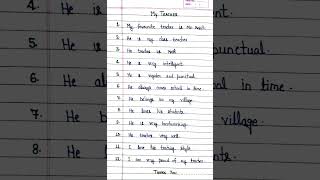 My Teacher
1. My favourite teacher is Mr.
2. He is my class teacher.
3. He teaches us
4. He is very intelligent.
5. He is regular and punctual.
6. He always comes school in time.
7. He belongs to my village.
8. He loves his students.
9. He is very hardworking.
10. He teaches very well.
11. I love his teaching style.
12. I am very proud of my teacher.
Thank You
4. He is
5. He is
6. He
7. He
8. He
in time.
village.